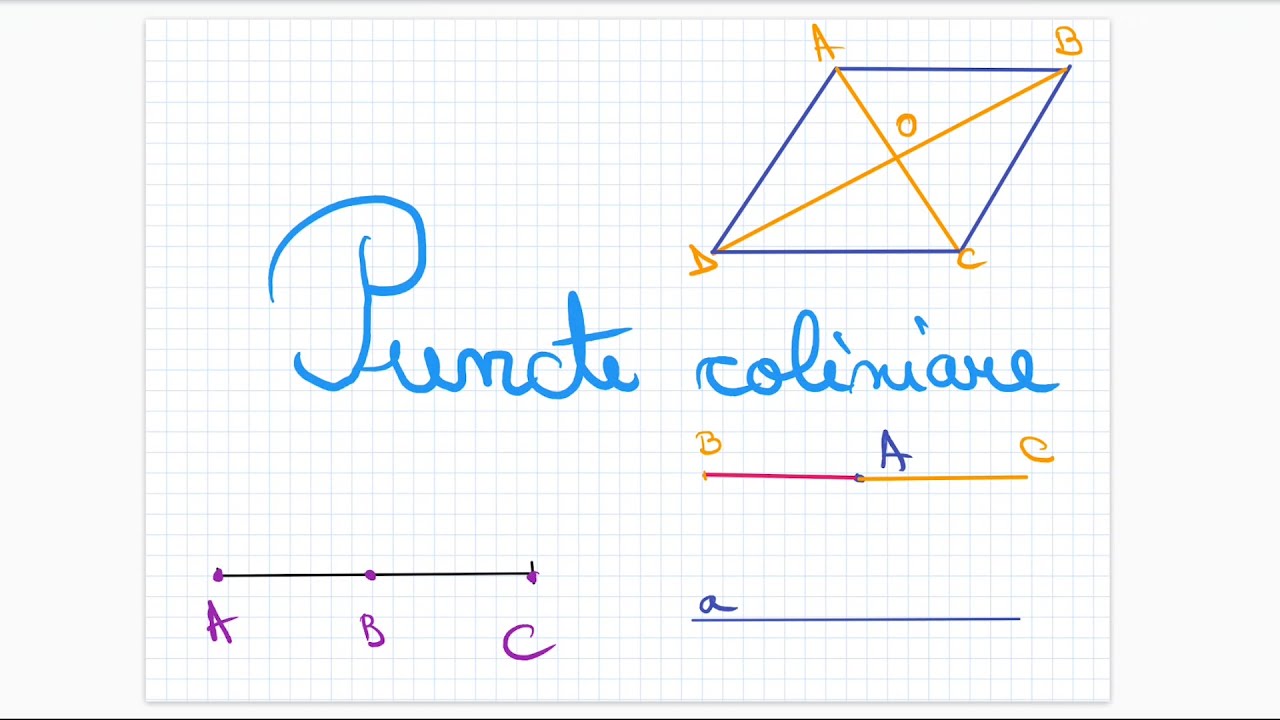 A B
O
D C
Puncte coliniare
B A C
a
A B C